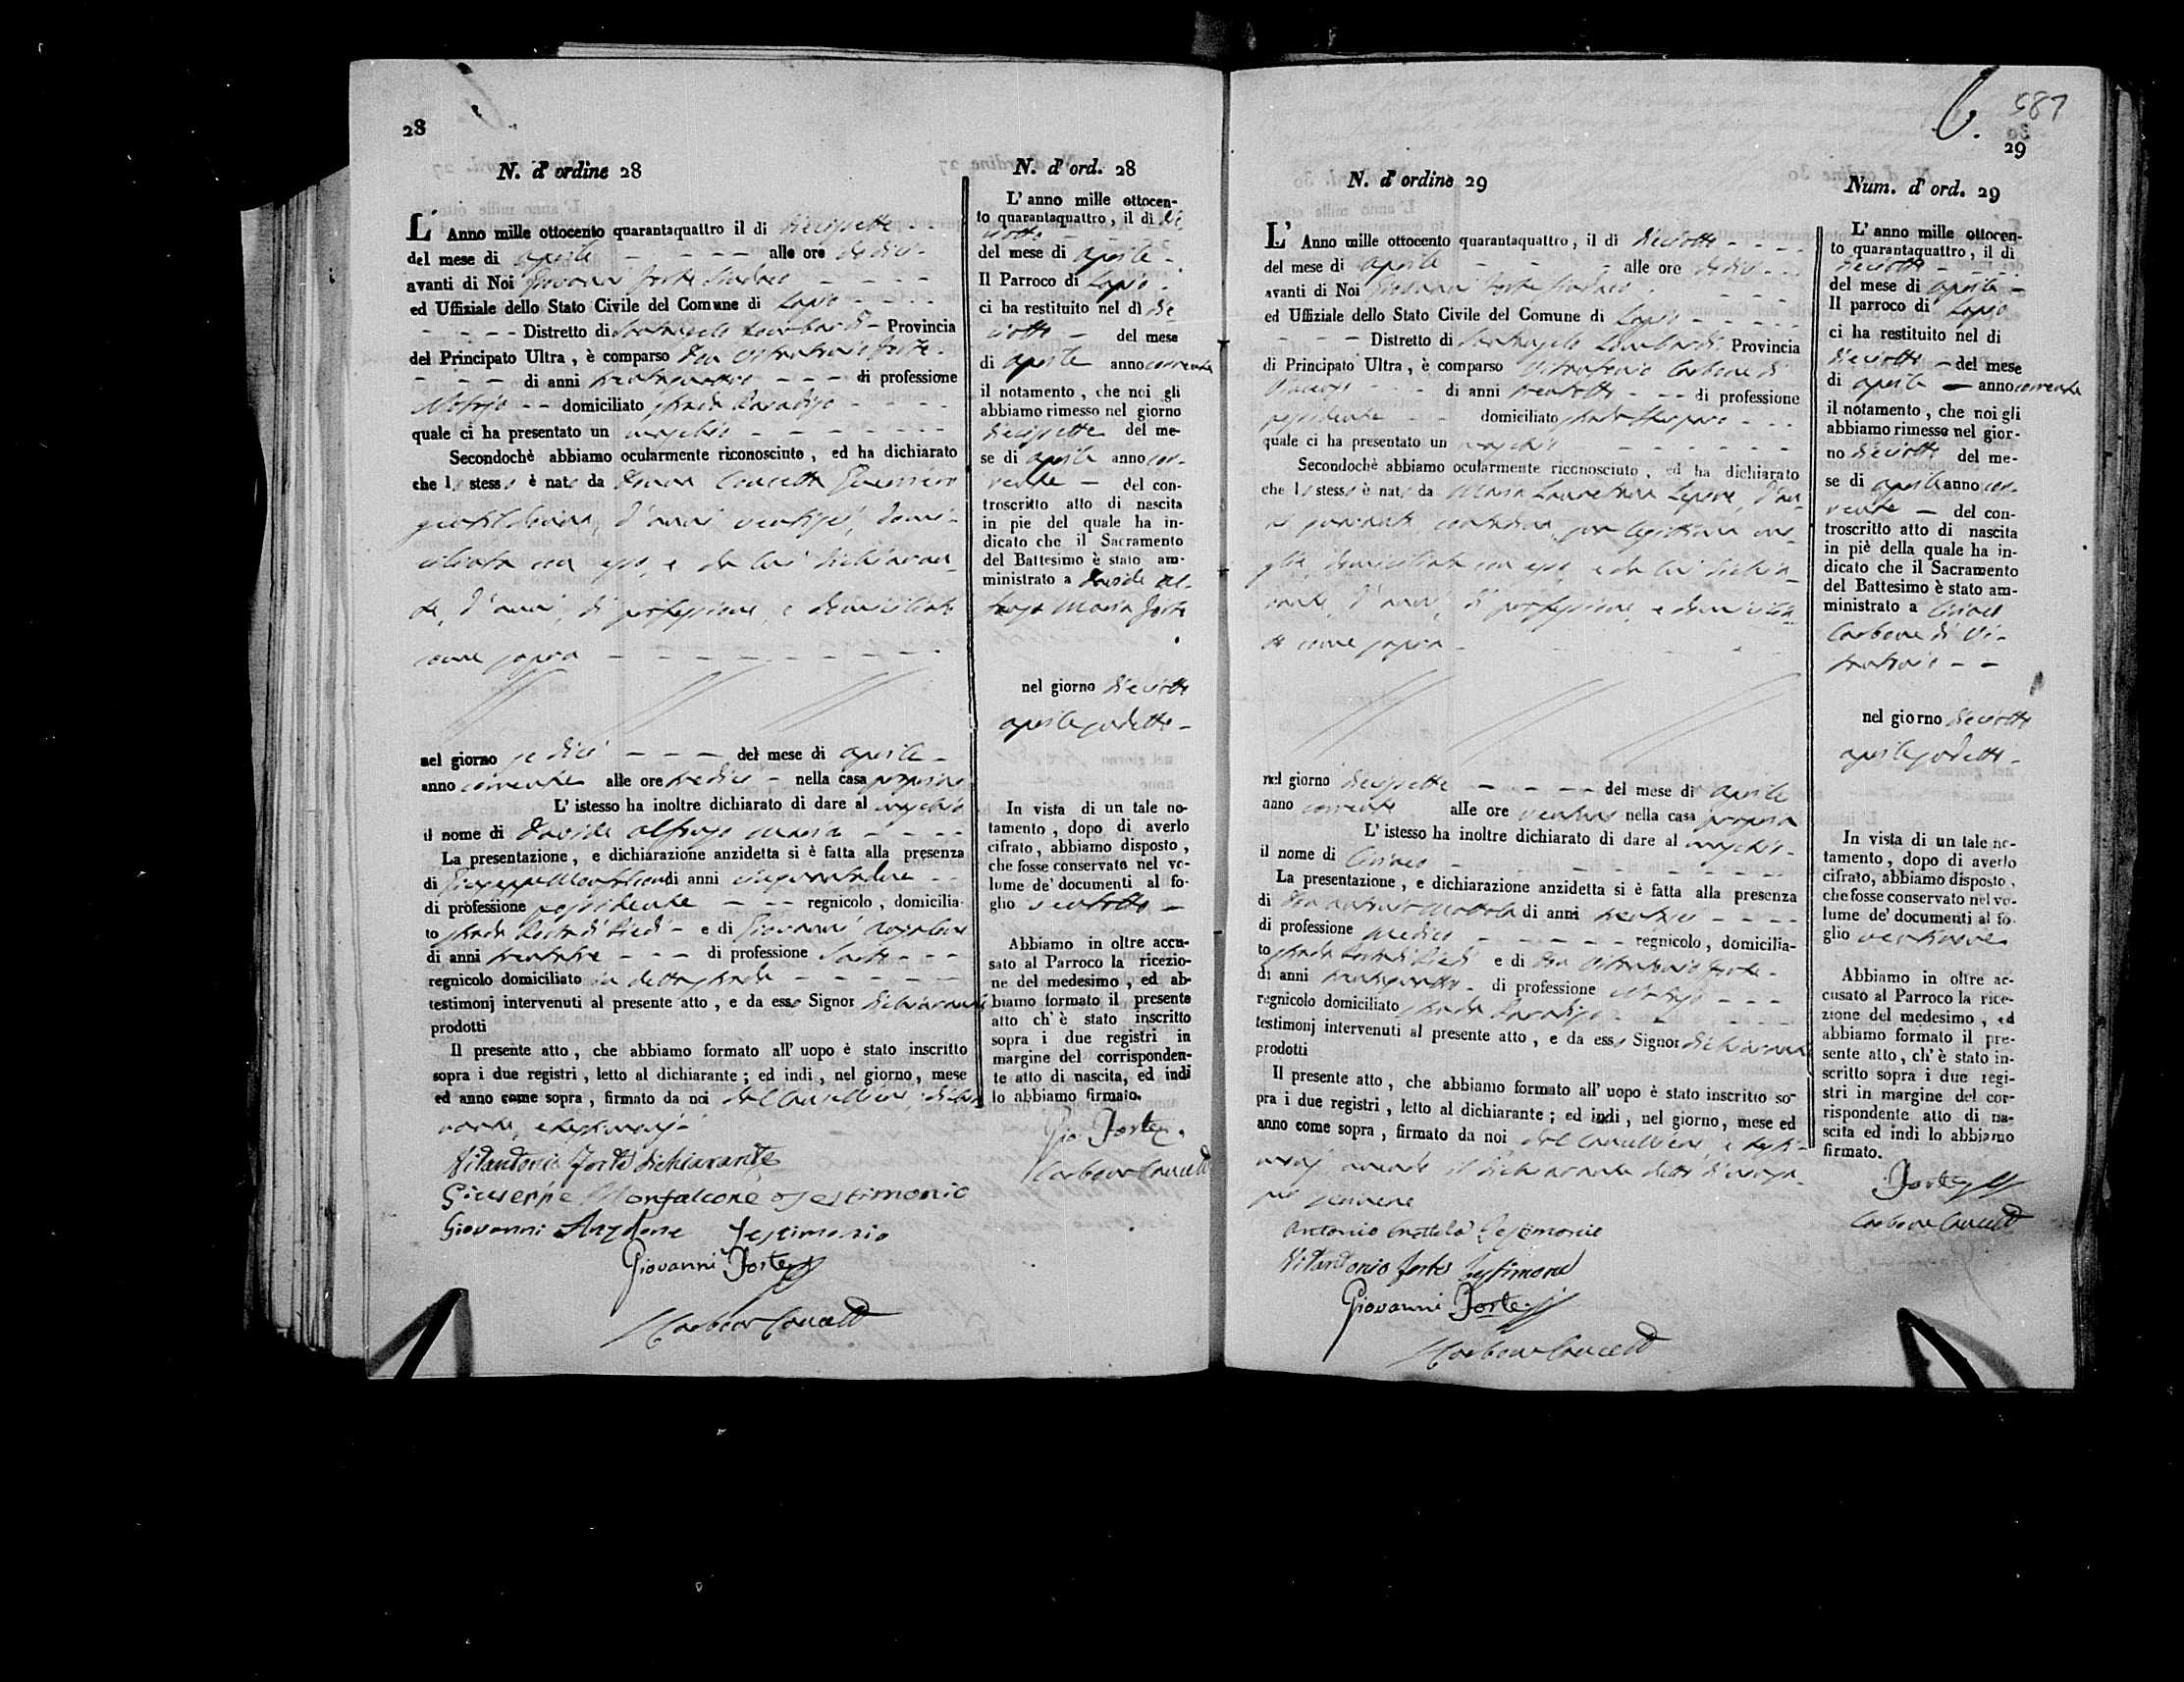 28
N. d' ordine 28
L' Anno mille ottocento quarantaquattro il di diecisette
del mese di aprile alle ore dodici
avanti di Noi Giovanni Forte Sindaco
ed Uffiziale dello Stato Civile del Comune di Lapio
Distretto di Santangelo Lombardi Provincia
del Principato Ultra, è comparso Don Vitantonio Forte
di anni trentaquattro di professione
Notajo domiciliato strada Paradiso
quale ci ha presentato un maschio
Secondochè abbiamo ocularmente riconosciuto, ed ha dichiarato
che lo stesso è nato da Donna Concetta
gentildonna, d'anni ventisei, domi-
ciliata con esso, e da lui dichiaran-
te, d'anni, di professione, e domiciliato
come sopra
nel giorno sedici del mese di aprile
anno corrente alle ore tredici nella casa propria
L' istesso ha inoltre dichiarato di dare al maschio
il nome di Davide Alfonso Maria
La presentazione, e dichiarazione anzidetta si è fatta alla presenza
di Giuseppe Monfalcone di anni cinquantadue
di professione possidente regnicolo, domicilia-
to strada di Piedi e di Giovanni Anzalone
di anni trentatre di professione Sarto
regnicolo domiciliato in detta strada
testimonj intervenuti al presente atto, e da esso Signor dichiarante
prodotti
Il presente atto, che abbiamo formato all' uopo è stato inscritto
sopra i due registri, letto al dichiarante; ed indi, nel giorno, mese
ed anno come sopra, firmato da noi dal Cancelliere, dichia-
rante, e testimonj
Vitantonio Forte dichiarante
Giuseppe Monfalcone Testimonio
Giovanni Anzalone Testimonio
Giovanni Forte
Carbone
N. d' ord. 28
L' anno mille ottocen-
to quarantaquattro, il di die
ciotto
del mese di aprile
Il Parroco di Lapio
ci ha restituito nel dì die
ciotto del mese
di aprile anno corrente
il notamento, che noi gli
abbiamo rimesso nel giorno
diecisette del me-
se di aprile anno cor-
rente del con-
troscritto atto di nascita
in pie del quale ha in-
dicato che il Sacramento
del Battesimo è stato am-
ministrato a Davide Al-
fonso Maria Forte
nel giorno dieciotto
aprile sudetto
In vista di un tale no-
tamento, dopo di averlo
cifrato, abbiamo disposto,
che fosse conservato nel vo-
lume de' documenti al fo-
glio ventotto
Abbiamo in oltre accu-
sato al Parroco la ricezio-
ne del medesimo, ed ab-
biamo formato il presente
atto ch' è stato inscritto
sopra i due registri in
margine del corrisponden-
te atto di nascita, ed indi
lo abbiamo firmato.
Gio. Forte
Carbone
587
29
N. d' ordine 29
L' Anno mille ottocento quarantaquattro, il di dieciotto
del mese di aprile alle ore dodici
avanti di Noi Giovanni Forte Sindaco
ed Uffiziale dello Stato Civile del Comune di Lapio
Distretto di Santangelo Lombardi Provincia
di Principato Ultra, è comparso Vitantonio Carbone di
di anni trentotto di professione
domiciliato strada
quale ci ha presentato un maschio
Secondochè abbiamo ocularmente riconosciuto, ed ha dichiarato
che lo stesso è nato da Maria Lauretana Lepore, d'an
ni contadina, sua legittima mo-
glie, domiciliata con esso, e da lui dichia-
rante, d'anni, di professione, e domicilia-
to come sopra
nel giorno diecisette del mese di aprile
anno corrente alle ore ventuno nella casa propria
L' istesso ha inoltre dichiarato di dare al maschio
il nome di Ciriaco
La presentazione, e dichiarazione anzidetta si è fatta alla presenza
di Don Antonio Mottola di anni trentasei
di professione medico regnicolo, domicilia-
to strada di Piedi e di Don Vitantonio Forte
di anni trentaquattro di professione Notajo
regnicolo domiciliato strada Paradiso
testimonj intervenuti al presente atto, e da esso Signor dichiarante
prodotti
Il presente atto, che abbiamo formato all' uopo è stato inscritto so-
pra i due registri, letto al dichiarante; ed indi, nel giorno, mese ed
anno come sopra, firmato da noi dal Cancelliere, e testi-
monj, avendo il dichiarante detto di non sa-
per scrivere
Antonio Mottola Testimonio
Vitantonio Forte Testimone
Giovanni Forte
Carbone
Num. d' ord. 29
L' anno mille ottocen-
to quarantaquattro, il di
dieciotto
del mese di aprile
Il parroco di Lapio
ci ha restituito nel di
dieciotto del mese
di aprile anno corrente
il notamento, che noi gli
abbiamo rimesso nel gior-
no dieciotto del me-
se di aprile anno cor-
rente del con-
troscritto atto di nascita
in piè della quale ha in-
dicato che il Sacramento
del Battesimo è stato am-
ministrato a Ciriaco
Carbone di Vi-
tantonio
nel giorno dieciotto
aprile sudetto
In vista di un tale no-
tamento, dopo di averlo
cifrato, abbiamo disposto,
che fosse conservato nel vo-
lume de' documenti al fo-
glio ventinove
Abbiamo in oltre ac-
cusato al Parroco la rice-
zione del medesimo, ed
abbiamo formato il pre-
sente atto, ch' è stato in-
scritto sopra i due regi-
stri in margine del cor-
rispondente atto di na-
scita ed indi lo abbiamo
firmato.
Forte
Carbone